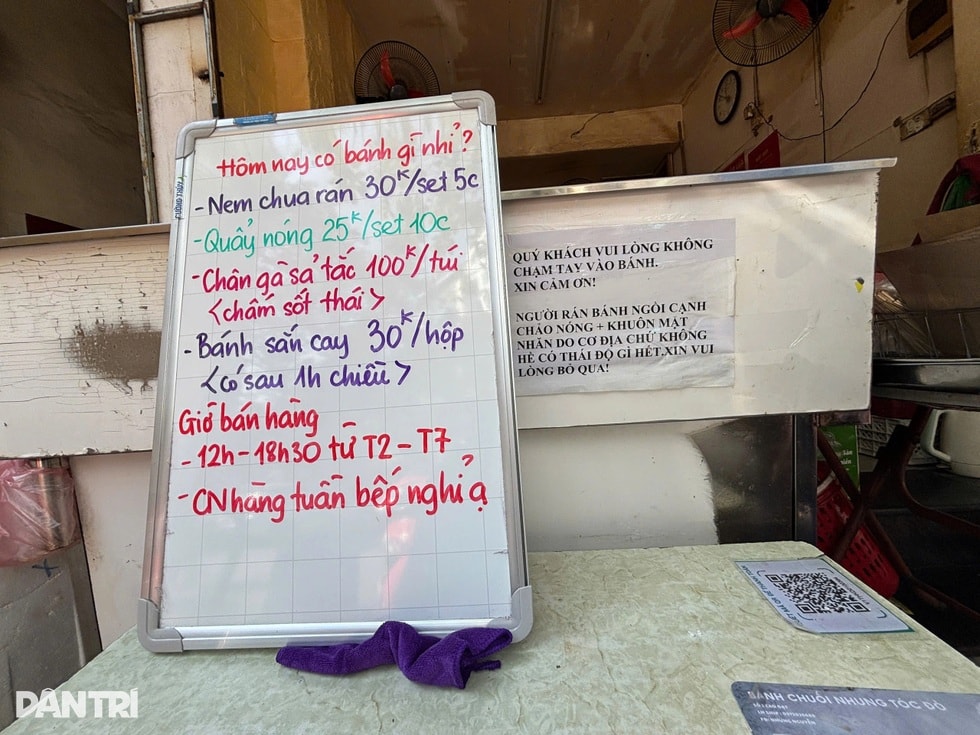 Hôm nay có bánh gì nhỉ?
- Nem chua rán 30K/set 5c
- Quẩy nóng 25K/set 10c
- Chân gà sả tắc 100K/túi
<chấm sốt thái>
- Bánh sắn cay 30K/hộp
<có sau 1h chiều>
Giờ bán hàng
- 12h - 18h30 từ T2 - T7
- CN hàng tuần bếp nghỉ ạ
QUÝ KHÁCH VUI LÒNG KHÔNG
CHẠM TAY VÀO BÁNH.
XIN CẢM ƠN!
NGƯỜI RÁN BÁNH NGỒI CẠNH
CHẢO NÓNG + KHUÔN MẶT
NHĂN DO CƠ ĐỊA CHỨ KHÔNG
HỀ CÓ THÁI ĐỘ GÌ HẾT.XIN VUI
LÒNG BỎ QUA!
BÁNH CHUỐI NHUNG TÓC ĐỎ
DÂN TRÍ